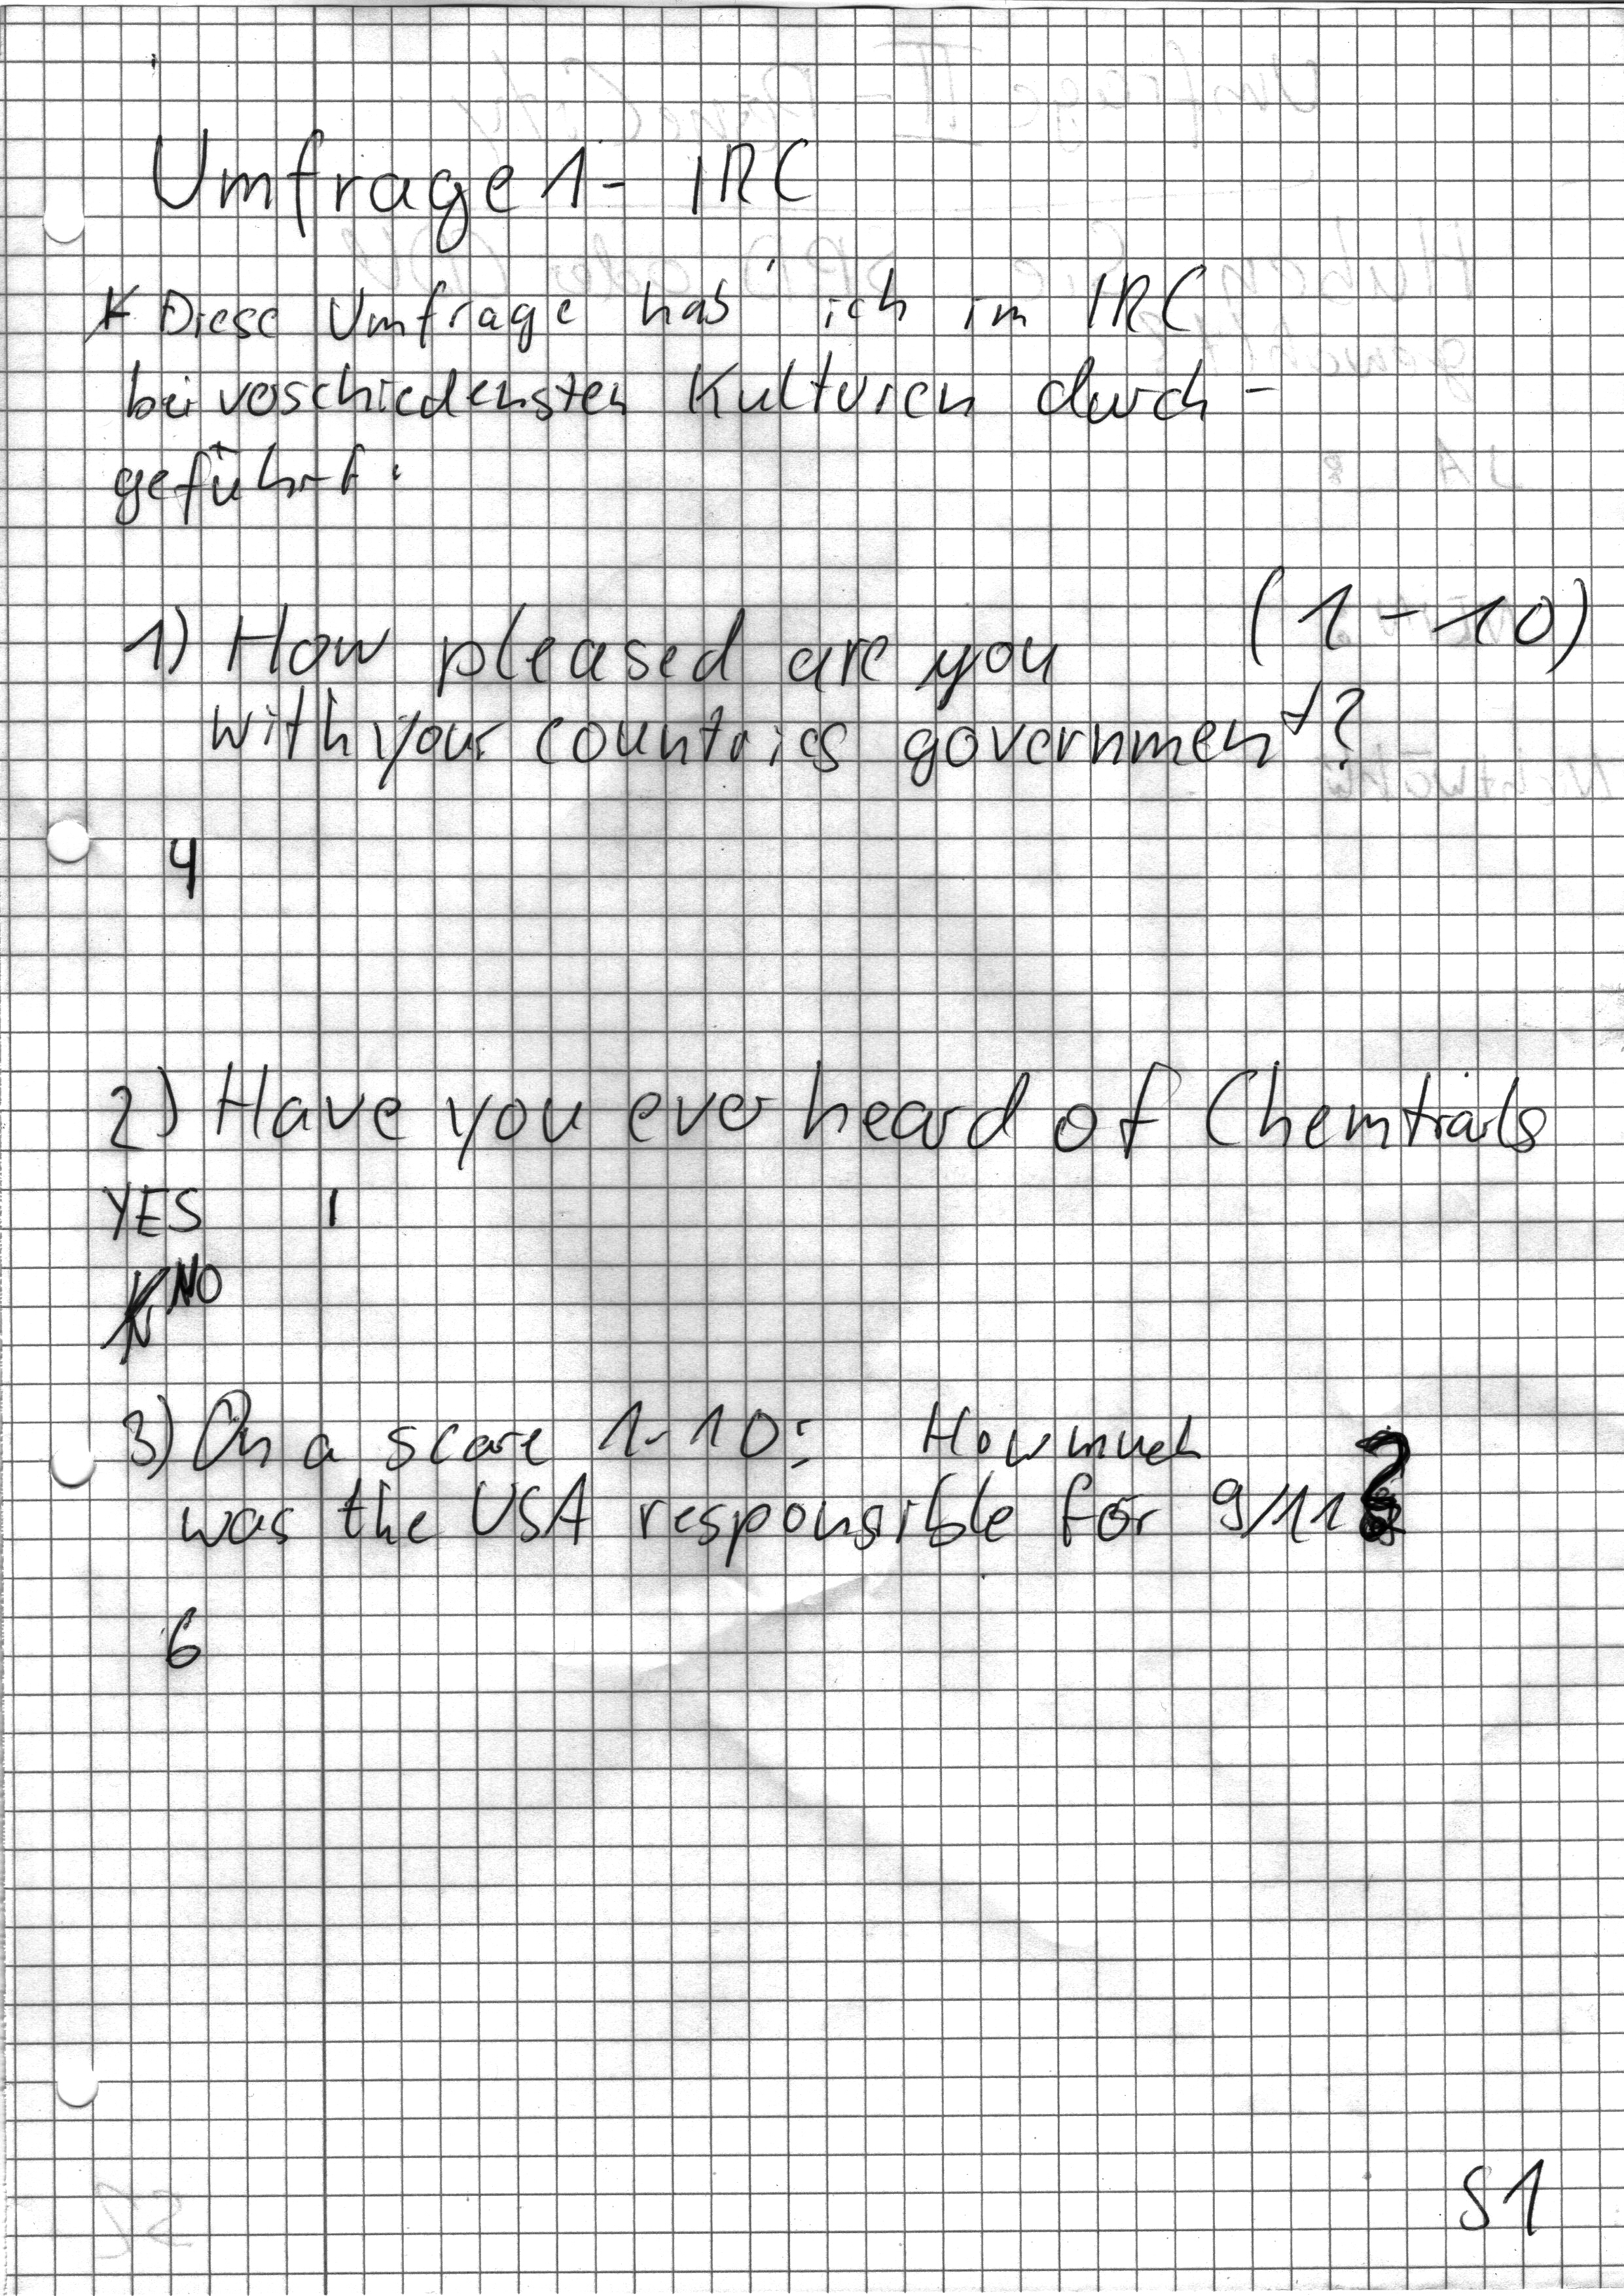 Umfrage 1- IRC
* Diese Umfrage hab' ich im IRC
bei verschiedensten Kulturen durch-
geführt:
1) How pleased are you (1-10)
with your countries government?
4
2) Have you ever heard of Chemtrails
YES I
NO
3) On a scare 1-10: How much
was the USA responsible for 9/11?
6
S1